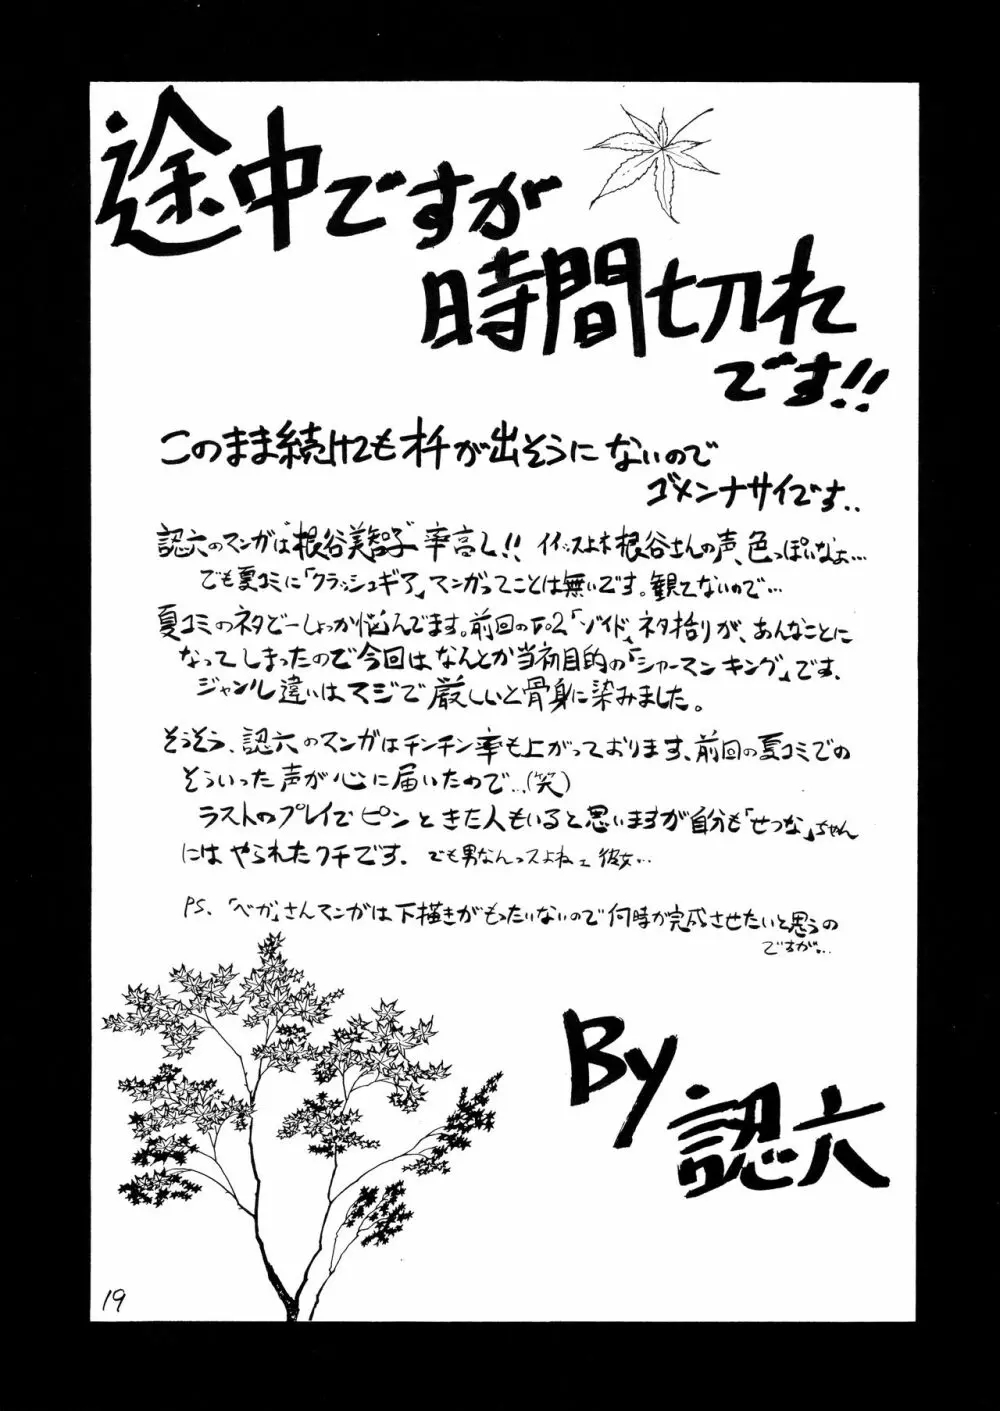 途中ですが
時間切れ
です!!
このまま続けてもオチが出そうにないので
ゴメンナサイです..
認六のマンガは"根谷美智子"率高し!! イイッスよネ根谷さんの声、色っぽいなぁ…
でも夏コミに「クラッシュギア」マンガってことは無いです。観てないので…
夏コミのネタどーしょっか悩んでます。前回のNo2「ゾイド」ネタ括りが、あんなことに
なってしまったので今回はなんとか当初目的の「シャーマンキング」です、
ジャンル違いはマジで厳しいと骨身に染みました。
そうそう、認六のマンガはチンチン率も上がっております、前回の夏コミでの
そういった声が心に届いたので...(笑)
ラストのプレイでピンときた人もいると思いますが自分も「せつな」ちゃん
にはやられたクチです. でも男なんスよね 彼女…
PS、「ベガ」さんマンガは下描きがもったいないので何時か完成させたいと思うの
ですが...
By
認六
19